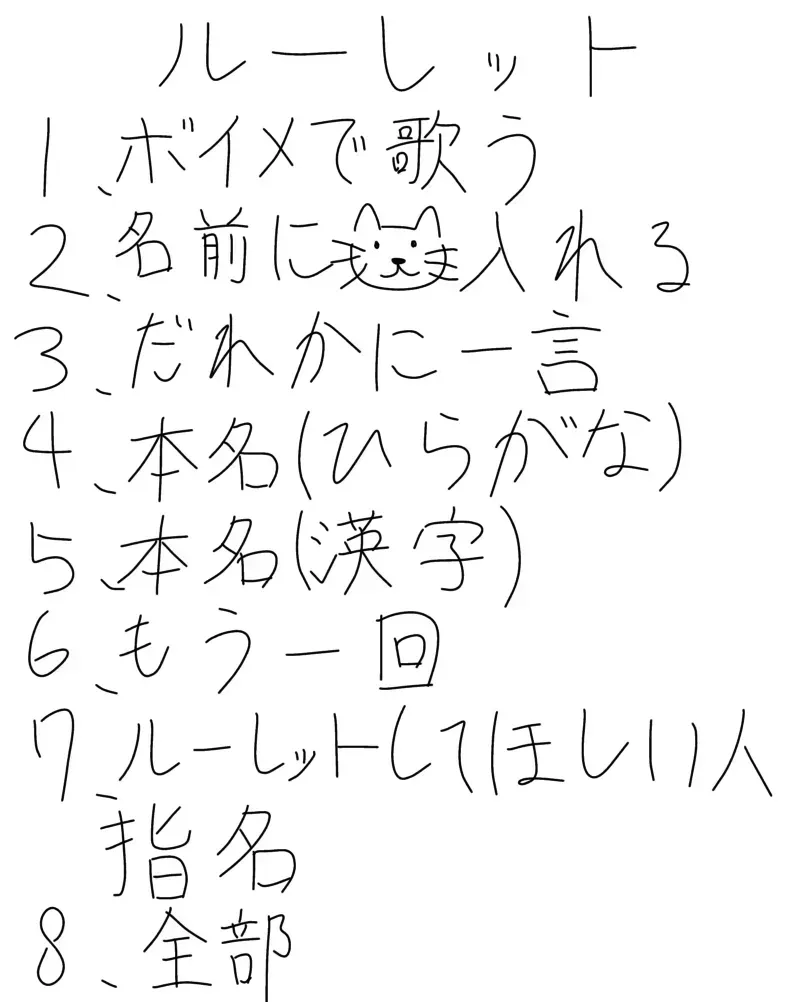 ルーレット
1、ボイメで歌う
2、名前に入れる
3、だれかに一言
4、本名(ひらがな)
5、本名(漢字)
6、もう一回
7、ルーレットしてほしい人
指名
8、全部